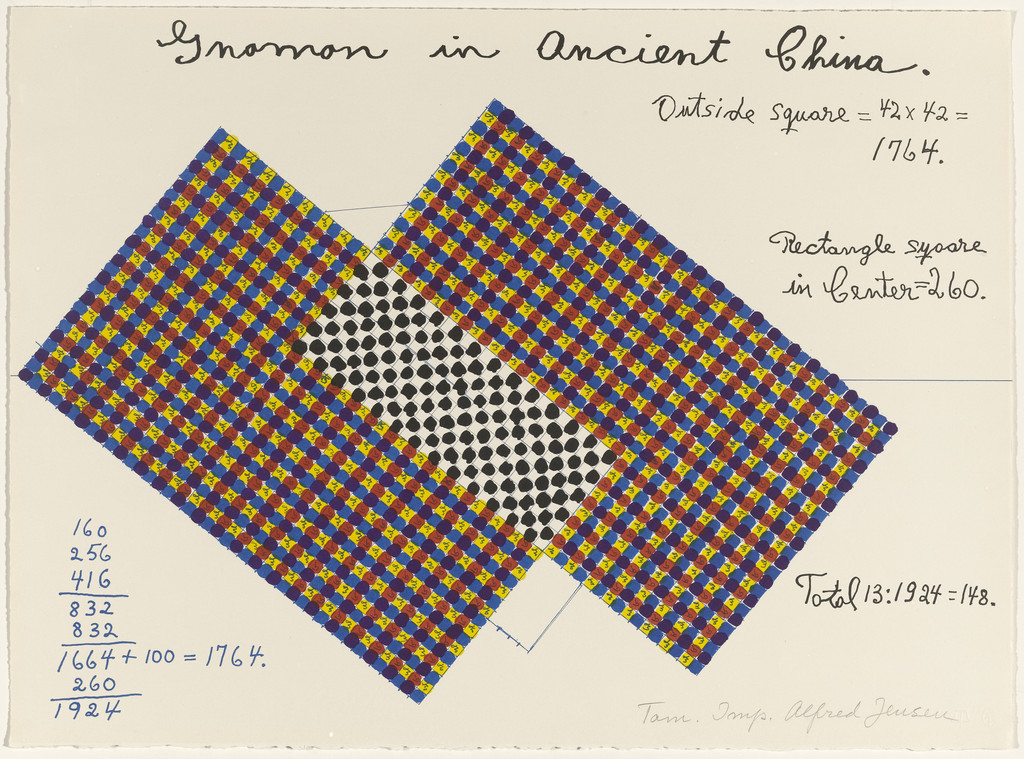 Gnomon in Ancient China.
Outside square = 42 x 42 =
1764.
Rectangle sqoare
in Center=260.
160
256
416
832
832
1664 + 100 = 1764.
260
1924
Total 13:1924=148.
Tam. Imp. Alfred Jensen